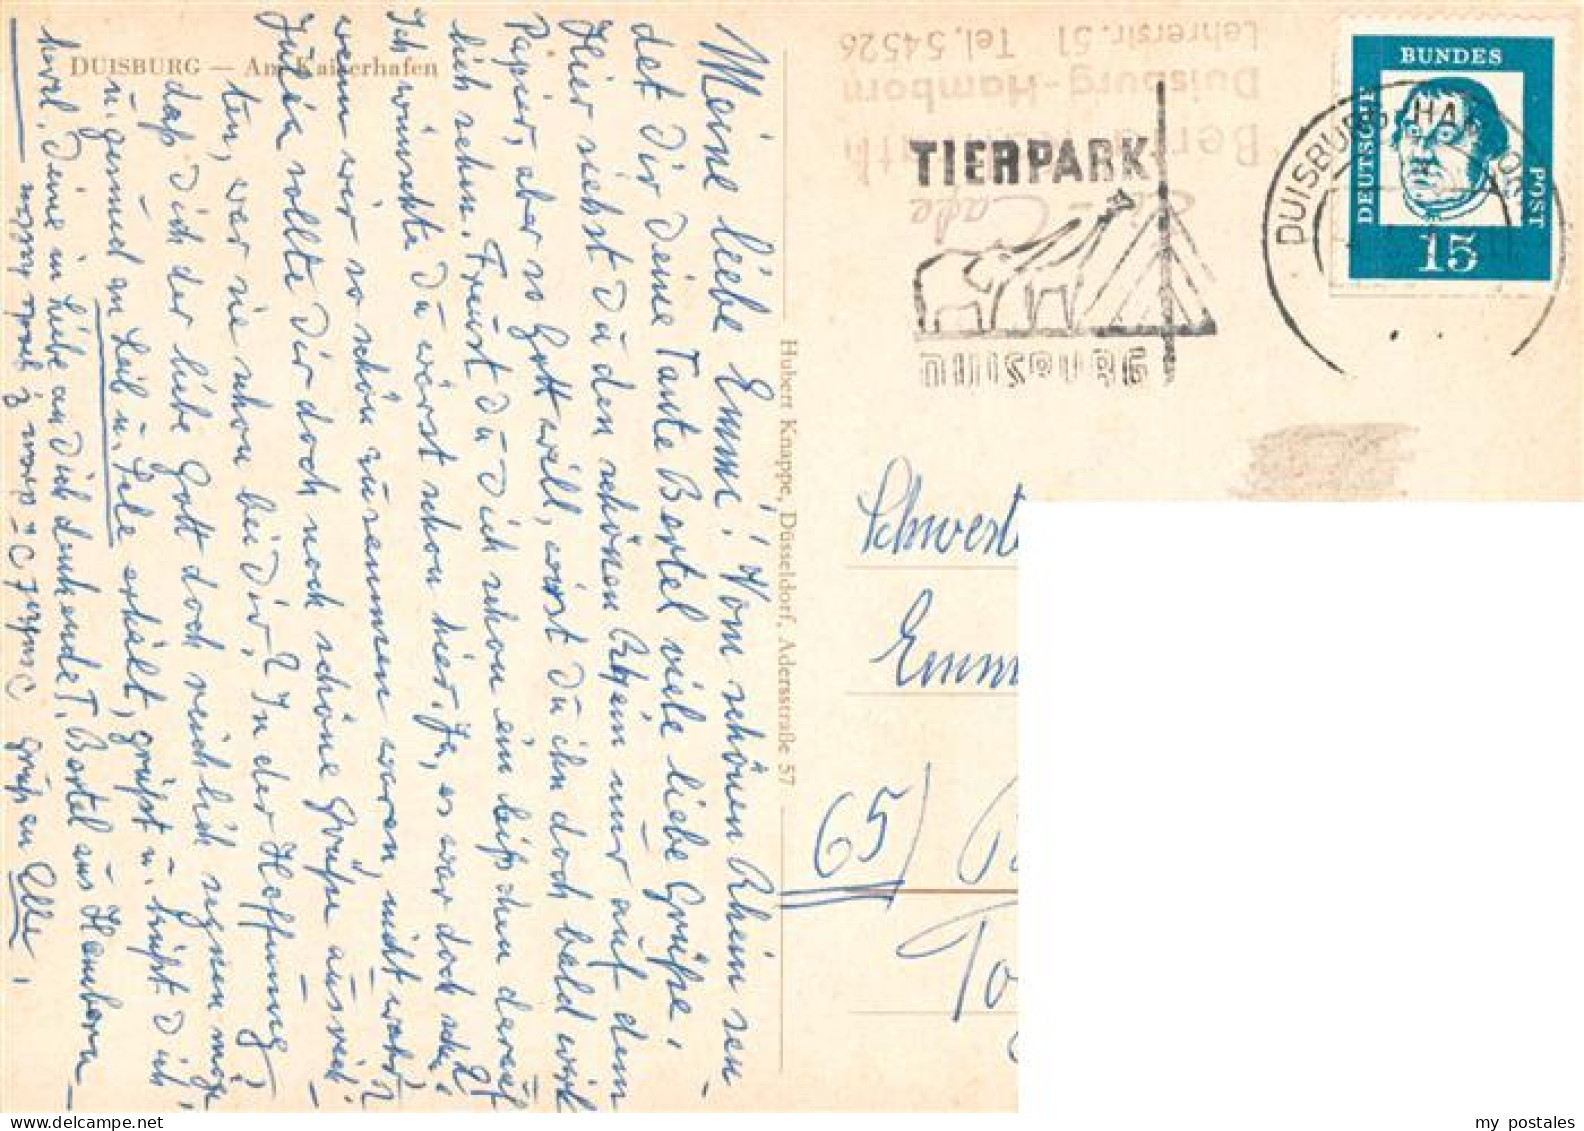 DUISBURG — Am Kaiserhafen
Meine liebe Emmi! Vom schönen Rhein sen-
det Dir Deine Tante Bertel viele liebe Grüße,
Hier siehst Du den schönen Rhein nur auf dem
Papier, aber so Gott will, wirst Du ihn doch bald wirk
lich sehen. Freust Du Dich schon ein bißchen darauf?
Ich wünschte Du wärst schon hier. Ja, es war doch sehr
wenn wir so schön zusammen waren, nicht wahr?
Julia sollte Dir doch noch schöne Grüße ausrich-
ten, war sie schon bei Dir? In der Hoffnung,
daß Dich der liebe Gott doch reichlich segnen möge,
u. gesund an Leib u. Sele erhält, grüßt u. küßt Dich
herzl. Deine in Liebe an Dich denkende T. Bertel aus Hamborn
grüßen Elli,
Hubert Knappe, Düsseldorf, Adersstraße 57
Duisburg-Hamborn
Lehrerstr. 51 Tel. 54526
TIERPARK
DUISBURG
DUISBURG-HAMBORN
DEUTSCHE
BUNDES
POST
15
Schwest
Emm
65)